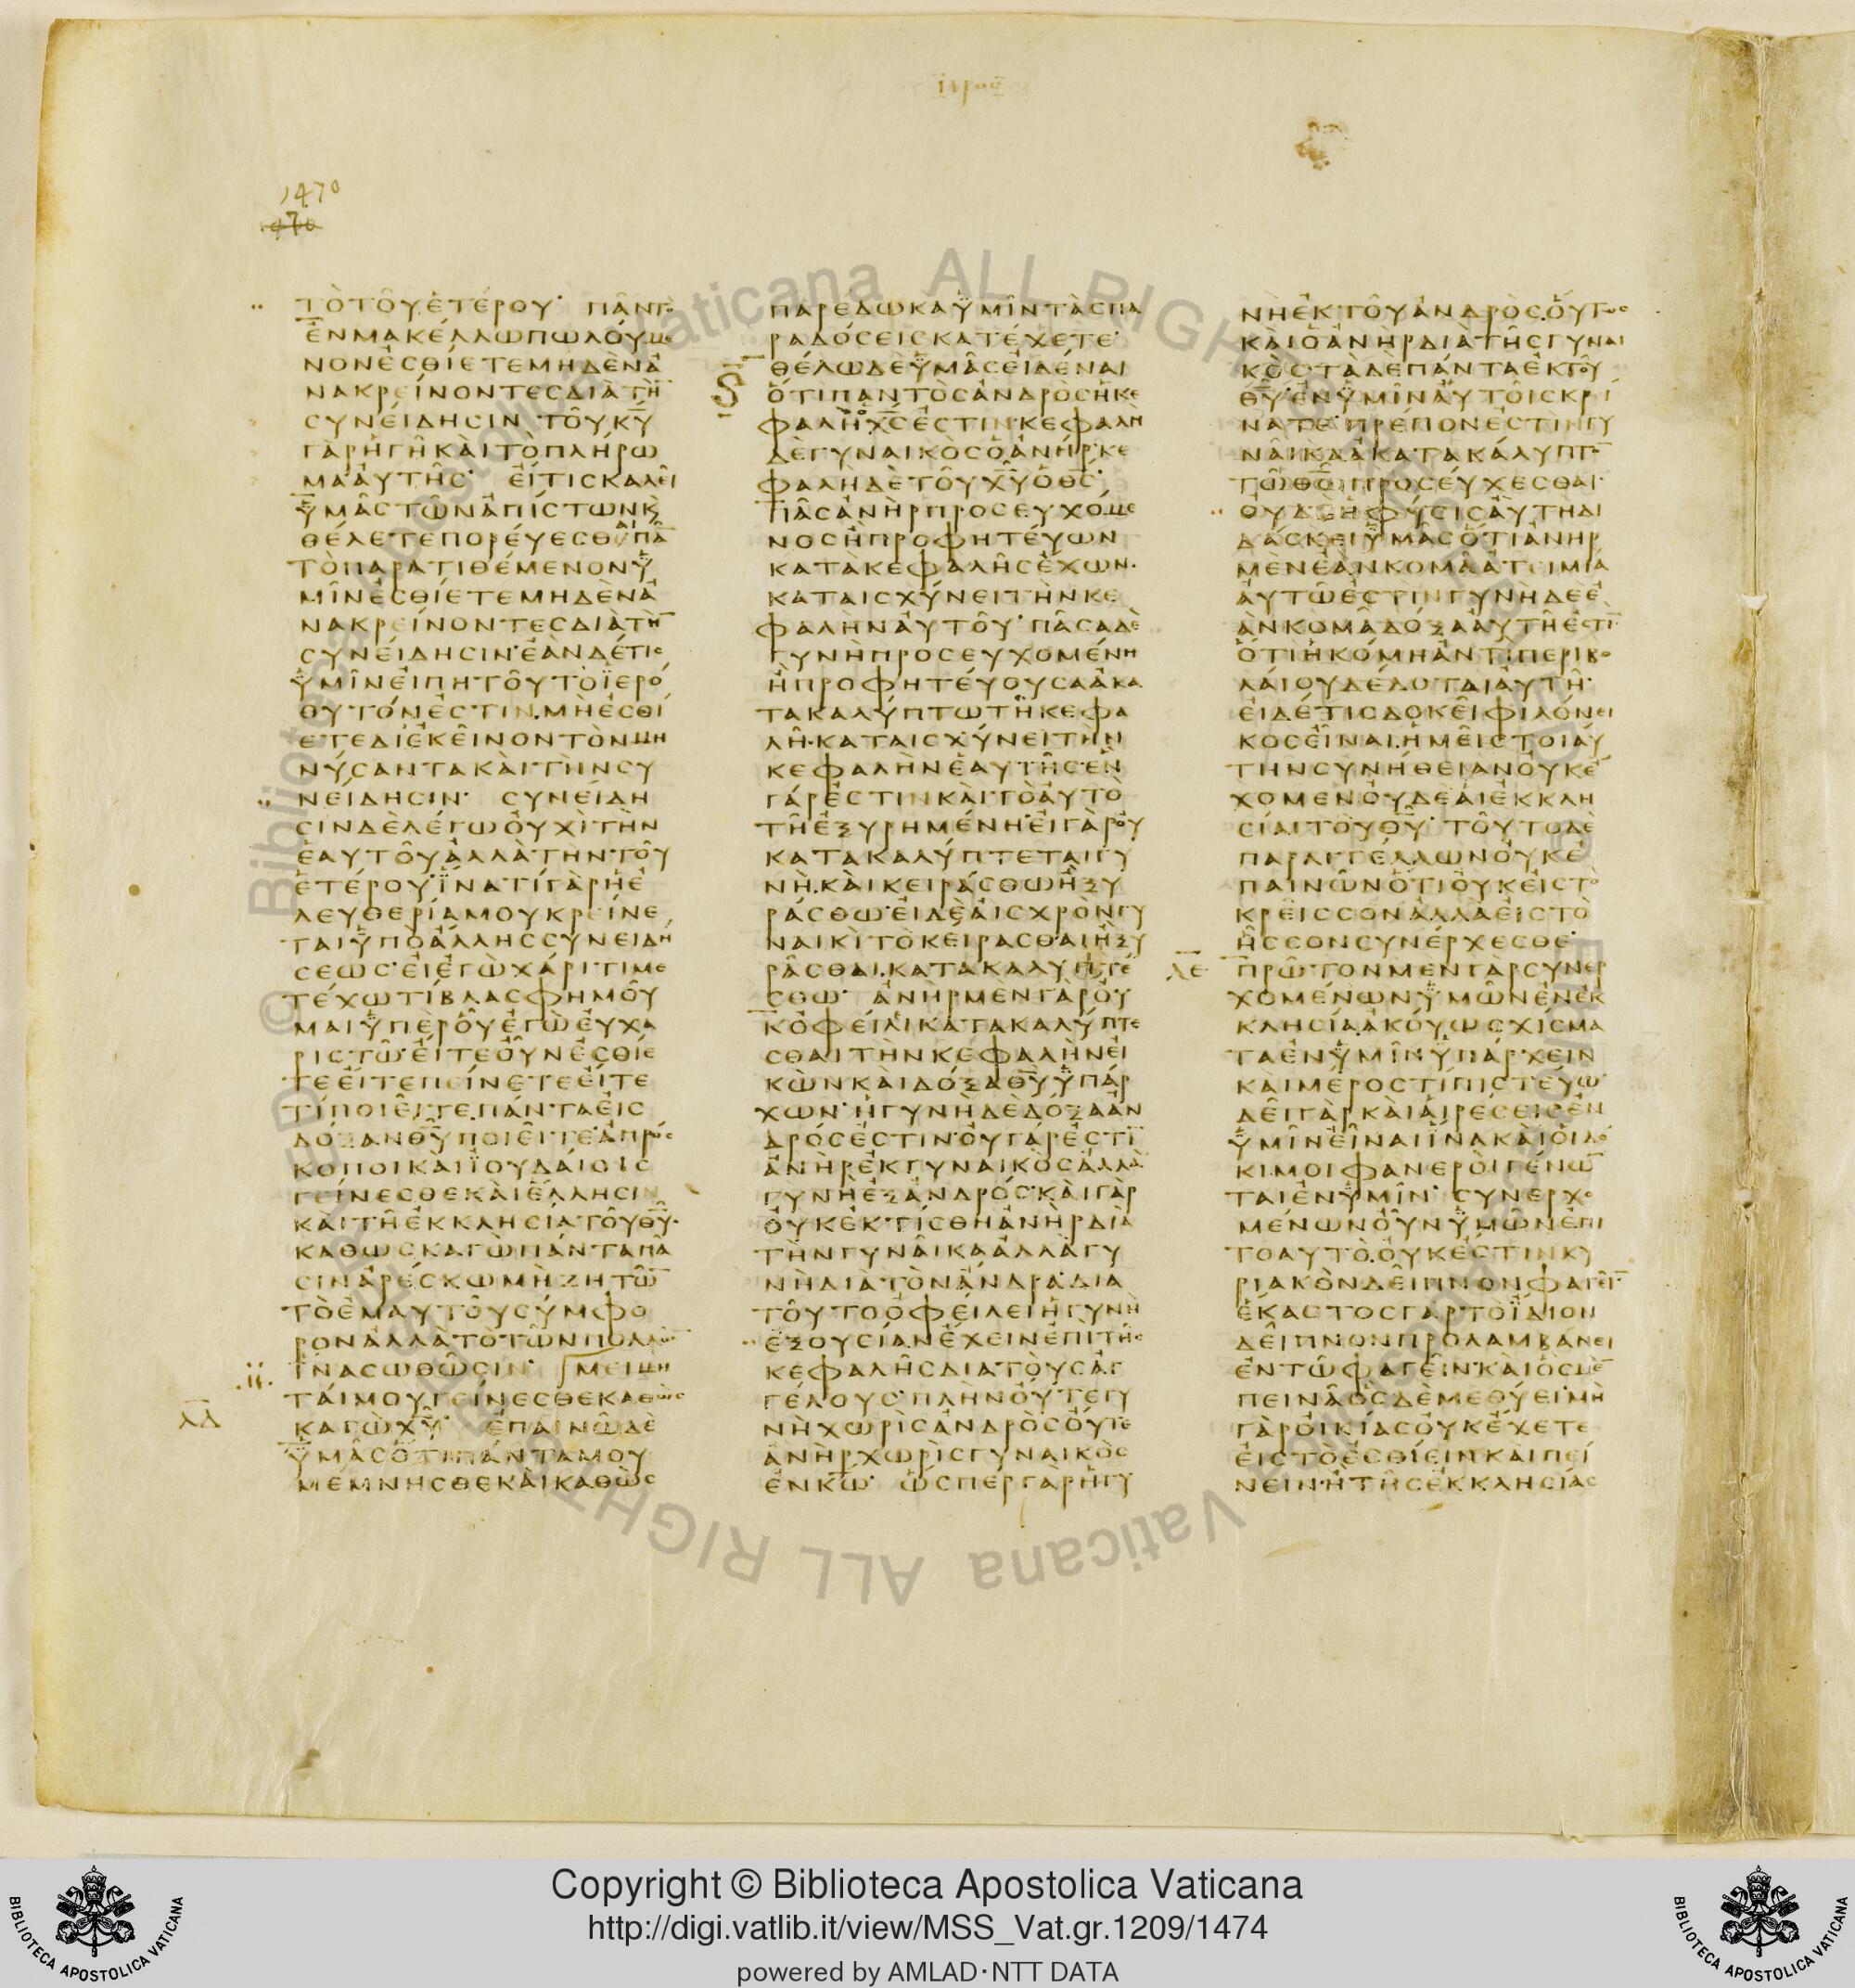 προς
1470
ΤΟΤΟΥΕΤΕΡΟΥ ΠΑΝΤΟ
ΕΝΜΑΚΕΛΛΩΠΩΛΟΥΜΕ
ΝΟΝΕΣΘΙΕΤΕΜΗΔΕΝΑ
ΝΑΚΡΕΙΝΟΝΤΕΣΔΙΑΤΗ̅
ΣΥΝΕΙΔΗΣΙΝ ΤΟΥΚ̅Υ̅
ΓΑΡΗΓΗΚΑΙΤΟΠΛΗΡΩ
ΜΑΑΥΤΗΣ ΕΙΤΙΣΚΑΛΕΙ
ΥΜΑΣΤΩΝΑΠΙΣΤΩΝΚ
ΘΕΛΕΤΕΠΟΡΕΥΕΣΘΑΙΠΑ̅
ΤΟΠΑΡΑΤΙΘΕΜΕΝΟΝΥ
ΜΙΝΕΣΘΙΕΤΕΜΗΔΕΝΑ
ΝΑΚΡΕΙΝΟΝΤΕΣΔΙΑΤΗ̅
ΣΥΝΕΙΔΗΣΙΝΕΑΝΔΕΤΙΣ
ΥΜΙΝΕΙΠΗΤΟΥΤΟΪΕΡΟ
ΘΥΤΟΝΕΣΤΙΝΜΗΕΣΘΙ
ΕΤΕΔΙΕΚΕΙΝΟΝΤΟΝΜΗ
ΝΥΣΑΝΤΑΚΑΙΤΗΝΣΥ
ΝΕΙΔΗΣΙΝ ΣΥΝΕΙΔΗ
ΣΙΝΔΕΛΕΓΩΟΥΧΙΤΗΝ
ΕΑΥΤΟΥΑΛΛΑΤΗΝΤΟΥ
ΕΤΕΡΟΥΪΝΑΤΙΓΑΡΗΕ
ΛΕΥΘΕΡΙΑΜΟΥΚΡΕΙΝΕ
ΤΑΙΥΠΟΑΛΛΗΣΣΥΝΕΙΔΗ
ΣΕΩΣΕΙΕΓΩΧΑΡΙΤΙΜΕ
ΤΕΧΩΤΙΒΛΑΣΦΗΜΟΥ
ΜΑΙΥΠΕΡΟΥΕΓΩΕΥΧΑ
ΡΙΣΤΩΕΙΤΕΟΥΝΕΣΘΙΕ
ΤΕΕΙΤΕΠΕΙΝΕΤΕΕΙΤΕ
ΤΙΠΟΙΕΙΤΕΠΑΝΤΑΕΙΣ
ΔΟΞΑΝΘ̅Υ̅ΠΟΙΕΙΤΕΑΠΡΟΣ
ΚΟΠΟΙΚΑΙΪΟΥΔΑΙΟΙΣ
ΓΕΙΝΕΣΘΕΚΑΙΕΛΛΗΣΙΝ
ΚΑΙΤΗΕΚΚΛΗΣΙΑΤΟΥΘ̅Υ̅
ΚΑΘΩΣΚΑΓΩΠΑΝΤΑΠΑ
ΣΙΝΑΡΕΣΚΩΜΗΖΗΤΩ̅
ΤΟΕΜΑΥΤΟΥΣΥΜΦΟ
ΡΟΝΑΛΛΑΤΟΤΩΝΠΟΛΛΩ̅
ΪΝΑΣΩΘΩΣΙΝ ΜΕΙΜΗ
ΤΑΙΜΟΥΓΕΙΝΕΣΘΕΚΑΘΩΣ
λδ ΚΑΓΩΧ̅Υ̅ ΕΠΑΙΝΩΔΕ
ΥΜΑΣΟΤΙΠΑΝΤΑΜΟΥ
ΜΕΜΝΗΣΘΕΚΑΙΚΑΘΩΣ
ΠΑΡΕΔΩΚΑΥΜΙΝΤΑΣΠΑ
ΡΑΔΟΣΕΙΣΚΑΤΕΧΕΤΕ
ΘΕΛΩΔΕΥΜΑΣΕΙΔΕΝΑΙ
ΟΤΙΠΑΝΤΟΣΑΝΔΡΟΣΗΚΕ
ΦΑΛΗΟΧ̅Σ̅ΕΣΤΙΝΚΕΦΑΛΗ
ΔΕΓΥΝΑΙΚΟΣΟΑΝΗΡΚΕ
ΦΑΛΗΔΕΤΟΥΧ̅Υ̅ΟΘ̅Σ̅
ΠΑΣΑΝΗΡΠΡΟΣΕΥΧΟΜΕ
ΝΟΣΗΠΡΟΦΗΤΕΥΩΝ
ΚΑΤΑΚΕΦΑΛΗΣΕΧΩΝ
ΚΑΤΑΙΣΧΥΝΕΙΤΗΝΚΕ
ΦΑΛΗΝΑΥΤΟΥ ΠΑΣΑΔΕ
ΓΥΝΗΠΡΟΣΕΥΧΟΜΕΝΗ
ΗΠΡΟΦΗΤΕΥΟΥΣΑΑΚΑ
ΤΑΚΑΛΥΠΤΩΤΗΚΕΦΑ
ΛΗΚΑΤΑΙΣΧΥΝΕΙΤΗΝ
ΚΕΦΑΛΗΝΕΑΥΤΗΣΕΝ
ΓΑΡΕΣΤΙΝΚΑΙΤΟΑΥΤΟ
ΤΗΕΞΥΡΗΜΕΝΗΕΙΓΑΡΟΥ
ΚΑΤΑΚΑΛΥΠΤΕΤΑΙΓΥ
ΝΗΚΑΙΚΕΙΡΑΣΘΩΗΞΥ
ΡΑΣΘΩΕΙΔΕΑΙΣΧΡΟΝΓΥ
ΝΑΙΚΙΤΟΚΕΙΡΑΣΘΑΙΗΞΥ
ΡΑΣΘΑΙΚΑΤΑΚΑΛΥΠΤΕ
ΣΘΩ ΑΝΗΡΜΕΝΓΑΡΟΥ
ΚΟΦΕΙΛΙΚΑΤΑΚΑΛΥΠΤΕ
ΣΘΑΙΤΗΝΚΕΦΑΛΗΝΕΙ
ΚΩΝΚΑΙΔΟΞΑΘ̅Υ̅ΥΠΑΡ
ΧΩΝΗΓΥΝΗΔΕΔΟΞΑΑΝ
ΔΡΟΣΕΣΤΙΝΟΥΓΑΡΕΣΤΙ̅
ΑΝΗΡΕΚΓΥΝΑΙΚΟΣΑΛΛΑ
ΓΥΝΗΕΞΑΝΔΡΟΣΚΑΙΓΑΡ
ΟΥΚΕΚΤΙΣΘΗΑΝΗΡΔΙΑ
ΤΗΝΓΥΝΑΙΚΑΑΛΛΑΓΥ
ΝΗΔΙΑΤΟΝΑΝΔΡΑΔΙΑ
ΤΟΥΤΟΟΦΕΙΛΕΙΗΓΥΝΗ
ΕΞΟΥΣΙΑΝΕΧΕΙΝΕΠΙΤΗΣ
ΚΕΦΑΛΗΣΔΙΑΤΟΥΣΑΓ
ΓΕΛΟΥΣΠΛΗΝΟΥΤΕΓΥ
ΝΗΧΩΡΙΣΑΝΔΡΟΣΟΥΤΕ
ΑΝΗΡΧΩΡΙΣΓΥΝΑΙΚΟΣ
ΕΝΚ̅Ω̅ ΩΣΠΕΡΓΑΡΗΓΥ
ΝΗΕΚΤΟΥΑΝΔΡΟΣΟΥΤΩΣ
ΚΑΙΟΑΝΗΡΔΙΑΤΗΣΓΥΝΑΙ
ΚΟΣΤΑΔΕΠΑΝΤΑΕΚΤΟΥ
Θ̅Υ̅ΕΝΥΜΙΝΑΥΤΟΙΣΚΡΙ
ΝΑΤΕΠΡΕΠΟΝΕΣΤΙΝΓΥ
ΝΑΙΚΑΑΚΑΤΑΚΑΛΥΠΤΟ̅
ΤΩΘ̅Ω̅ΠΡΟΣΕΥΧΕΣΘΑΙ
ΟΥΔΕΗΦΥΣΙΣΑΥΤΗΔΙ
ΔΑΣΚΕΙΥΜΑΣΟΤΙΑΝΗΡ
ΜΕΝΕΑΝΚΟΜΑΑΤΕΙΜΙΑ
ΑΥΤΩΕΣΤΙΝΓΥΝΗΔΕΕ
ΑΝΚΟΜΑΔΟΞΑΑΥΤΗΕΣΤΙ̅
ΟΤΙΗΚΟΜΗΑΝΤΙΠΕΡΙΒΟ
ΛΑΙΟΥΔΕΔΟΤΑΙΑΥΤΗ
ΕΙΔΕΤΙΣΔΟΚΕΙΦΙΛΟΝΕΙ
ΚΟΣΕΙΝΑΙΗΜΕΙΣΤΟΙΑΥ
ΤΗΝΣΥΝΗΘΕΙΑΝΟΥΚΕ
ΧΟΜΕΝΟΥΔΕΑΙΕΚΚΛΗ
ΣΙΑΙΤΟΥΘ̅Υ̅ ΤΟΥΤΟΔΕ
ΠΑΡΑΓΓΕΛΛΩΝΟΥΚΕ
ΠΑΙΝΩΝΟΤΙΟΥΚΕΙΣΤΟ
ΚΡΕΙΣΣΟΝΑΛΛΑΕΙΣΤΟ
ΗΣΣΟΝΣΥΝΕΡΧΕΣΘΕ
λε ΠΡΩΤΟΝΜΕΝΓΑΡΣΥΝΕΡ
ΧΟΜΕΝΩΝΥΜΩΝΕΝΕΚ
ΚΛΗΣΙΑΑΚΟΥΩΣΧΙΣΜΑ
ΤΑΕΝΥΜΙΝΥΠΑΡΧΕΙΝ
ΚΑΙΜΕΡΟΣΤΙΠΙΣΤΕΥΩ
ΔΕΙΓΑΡΚΑΙΑΙΡΕΣΕΙΣΕΝ
ΥΜΙΝΕΙΝΑΙΪΝΑΚΑΙΟΙΔΟ
ΚΙΜΟΙΦΑΝΕΡΟΙΓΕΝΩ̅
ΤΑΙΕΝΥΜΙΝ ΣΥΝΕΡΧΟ
ΜΕΝΩΝΟΥΝΥΜΩΝΕΠΙ
ΤΟΑΥΤΟΟΥΚΕΣΤΙΝΚΥ
ΡΙΑΚΟΝΔΕΙΠΝΟΝΦΑΓΕΙ̅
ΕΚΑΣΤΟΣΓΑΡΤΟΪΔΙΟΝ
ΔΕΙΠΝΟΝΠΡΟΛΑΜΒΑΝΕΙ
ΕΝΤΩΦΑΓΕΙΝΚΑΙΟΣΜΕ̅
ΠΕΙΝΑΟΣΔΕΜΕΘΥΕΙΜΗ
ΓΑΡΟΙΚΙΑΣΟΥΚΕΧΕΤΕ
ΕΙΣΤΟΕΣΘΙΕΙΝΚΑΙΠΕΙ
ΝΕΙΝΗΤΗΣΕΚΚΛΗΣΙΑΣ
© Biblioteca Apostolica Vaticana ALL RIGHTS RESERVED
Copyright © Biblioteca Apostolica Vaticana
http://digi.vatlib.it/view/MSS_Vat.gr.1209/1474
powered by AMLAD·NTT DATA
BIBLIOTECA APOSTOLICA VATICANA
BIBLIOTECA APOSTOLICA VATICANA